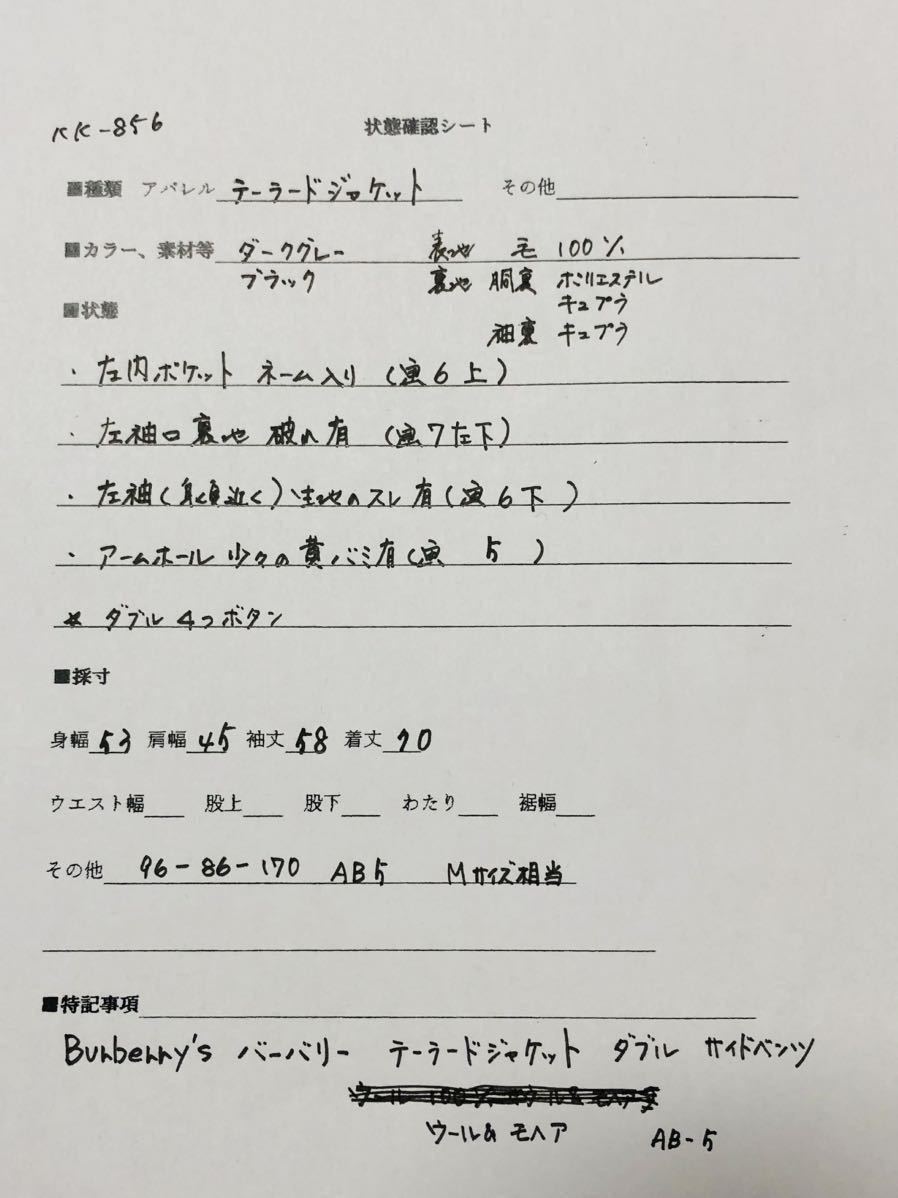 KK-856 状態確認シート
■種類 アパレル テーラードジャケット その他
■カラー、素材等 ダークグレー 表地 毛 100%
ブラック 裏地 胴裏 ポリエステル
キュプラ
■状態
袖裏 キュプラ
・左内ポケット ネーム入り (画6上)
・左袖口裏地 破れ有 (画7左下)
・左袖(身頃近く)生地のスレ有(画6下)
・アームホール 少々の黄バミ有(画 5 )
* ダブル 4つボタン
■採寸
身幅 53 肩幅 45 袖丈 58 着丈 70
ウエスト幅 股上 股下 わたり 裾幅
その他 96-86-170 AB5 Mサイズ相当
■特記事項
Burberry's バーバリー テーラードジャケット ダブル サイドベンツ
ウール& モヘア AB-5